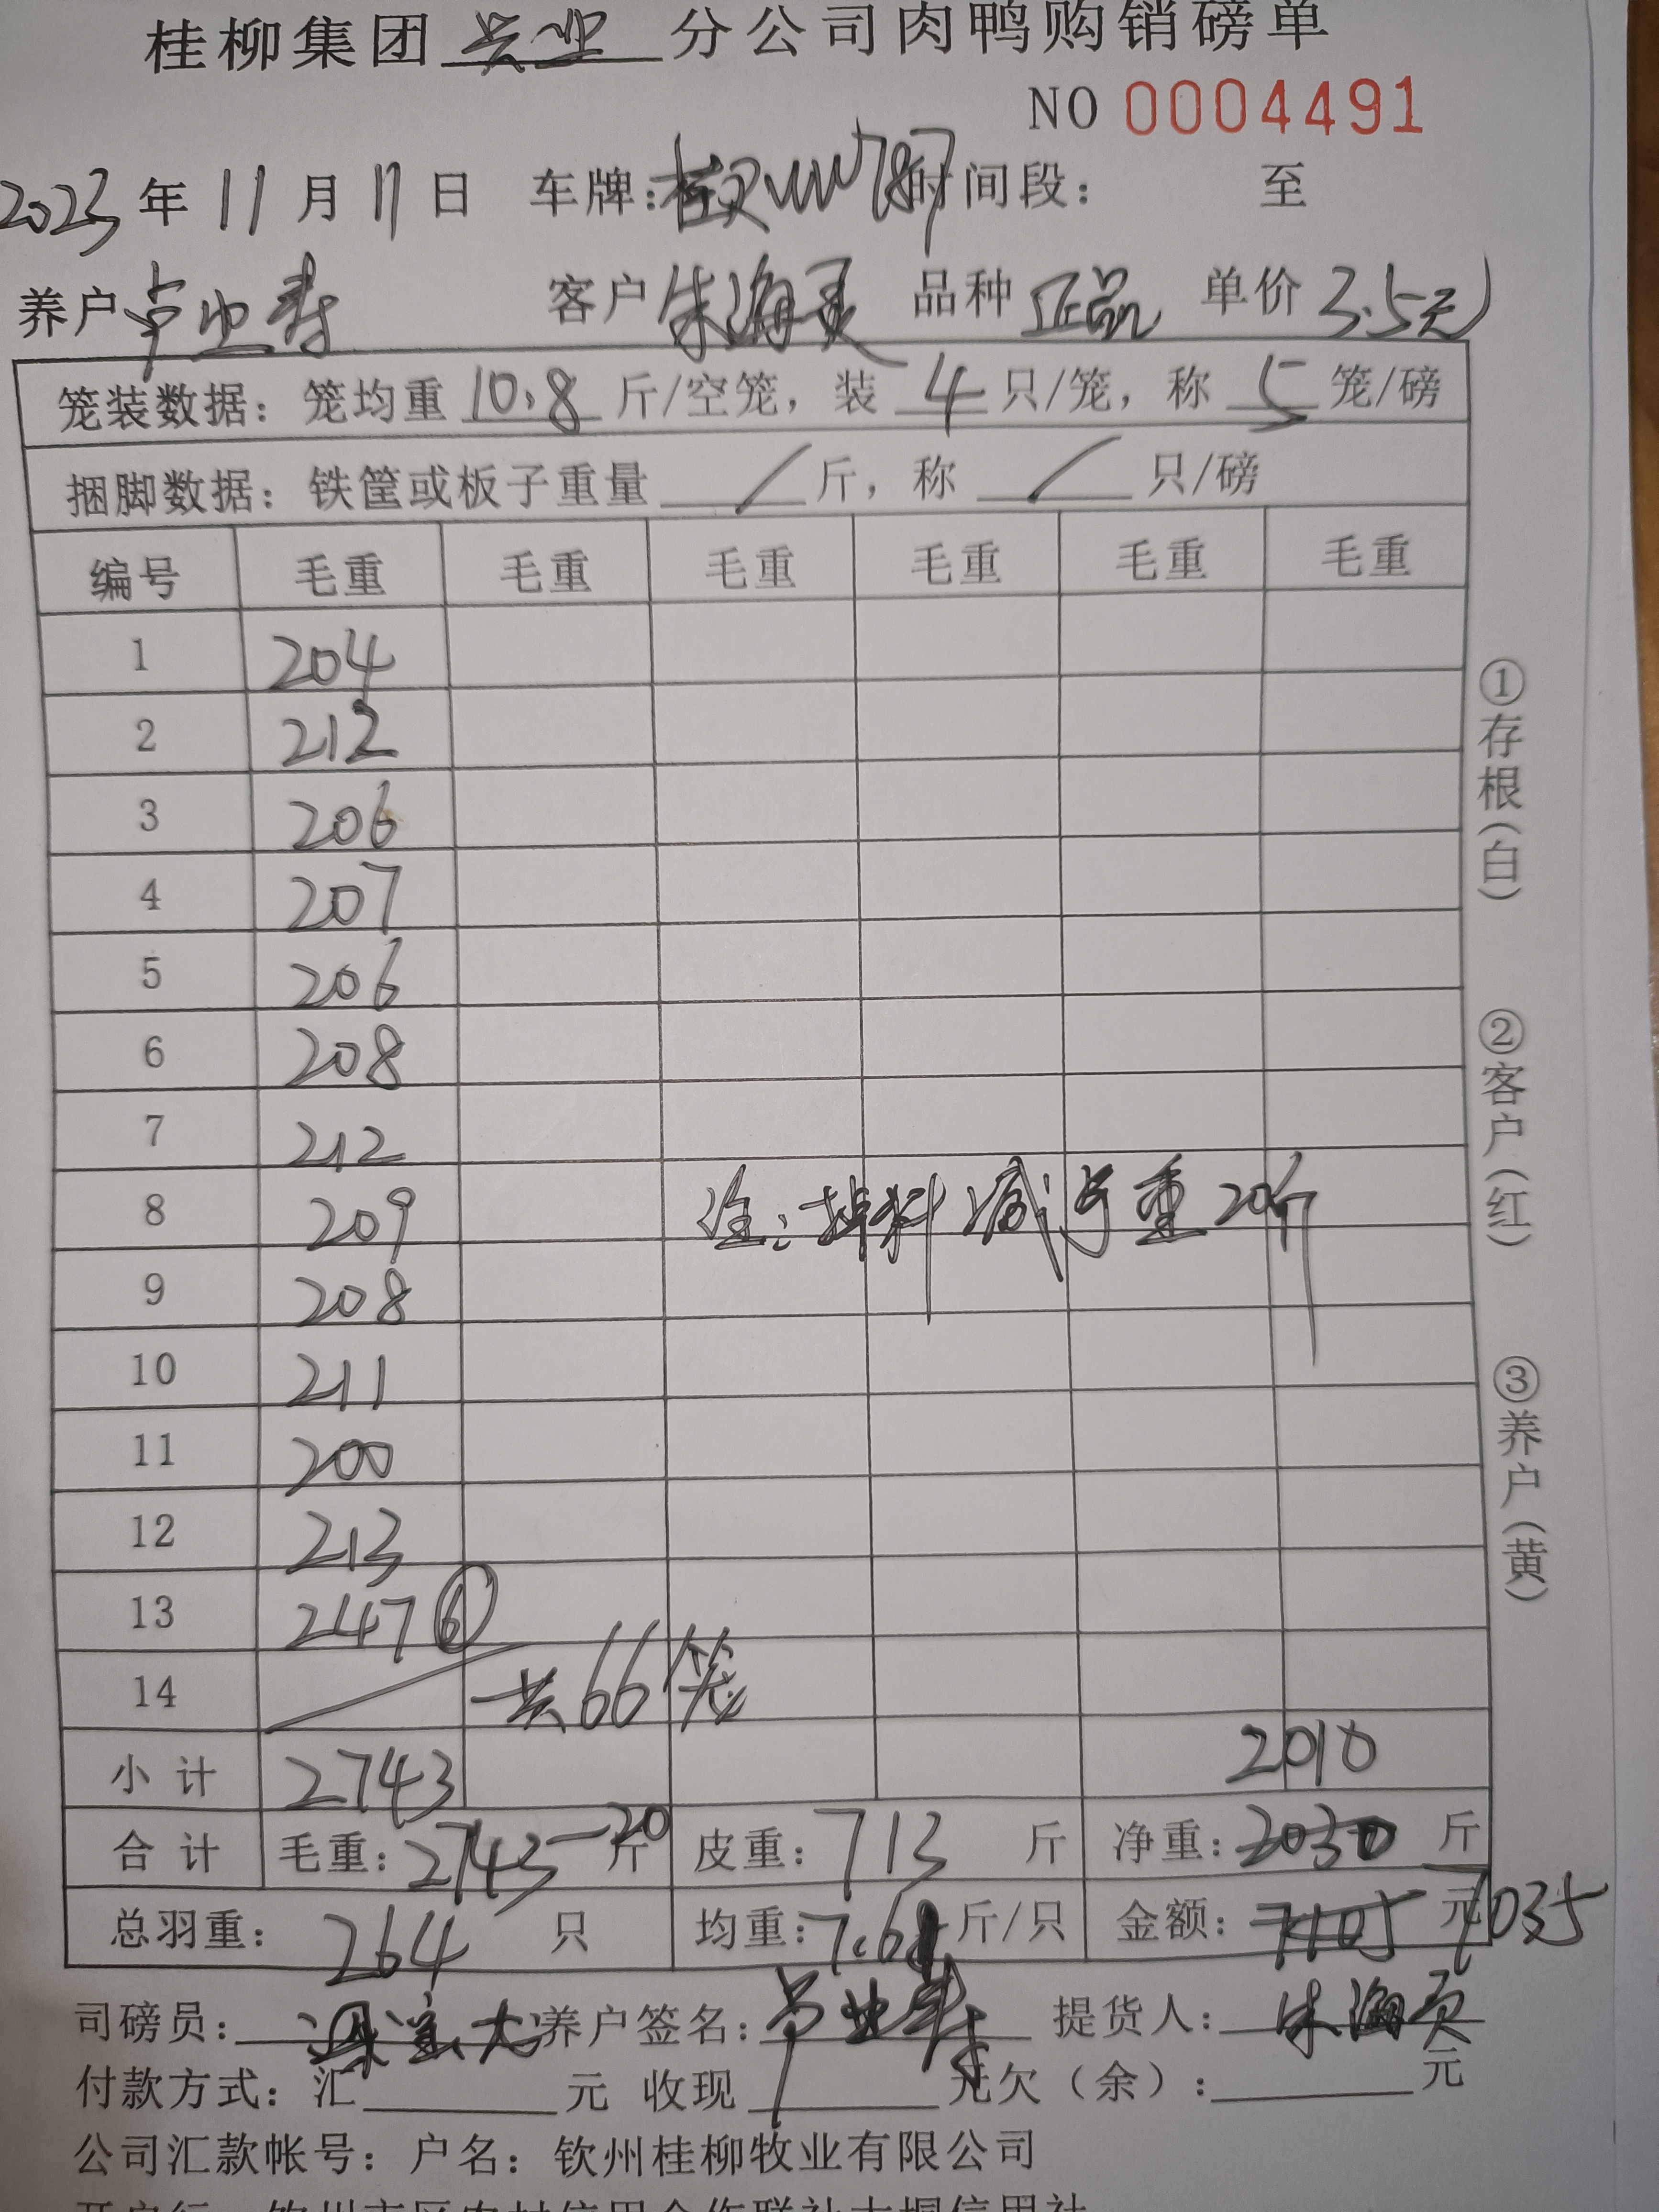 桂柳集团 兴业 分公司肉鸭购销磅单
NO 0004491
2023 年 11 月 11 日 车牌: 时间段: 至
养户 卢业寿 客户 朱海灵 品种 正品 单价 3.5元
笼装数据: 笼均重 10.8 斤/空笼, 装 4 只/笼, 称 5 笼/磅
捆脚数据: 铁筐或板子重量 / 斤, 称 / 只/磅
编号 毛重 毛重 毛重 毛重 毛重 毛重
1 204
2 212
3 206
4 207
5 206
6 208
7 212
8 209 注: 掉料减毛重20斤
9 208
10 211
11 200
12 213
13 247 ⑥
14 共66笼
小计 2743 2010
合计 毛重: 2743-20 斤 皮重: 713 斤 净重: 2030 斤
总羽重: 264 只 均重: 7.61 斤/只 金额: 7105 元 7035
司磅员: 养户签名: 卢业寿 提货人: 朱海灵
付款方式: 汇 元 收现 元欠(余): 元
公司汇款帐号: 户名: 钦州桂柳牧业有限公司
①存根(白) ②客户(红) ③养户(黄)